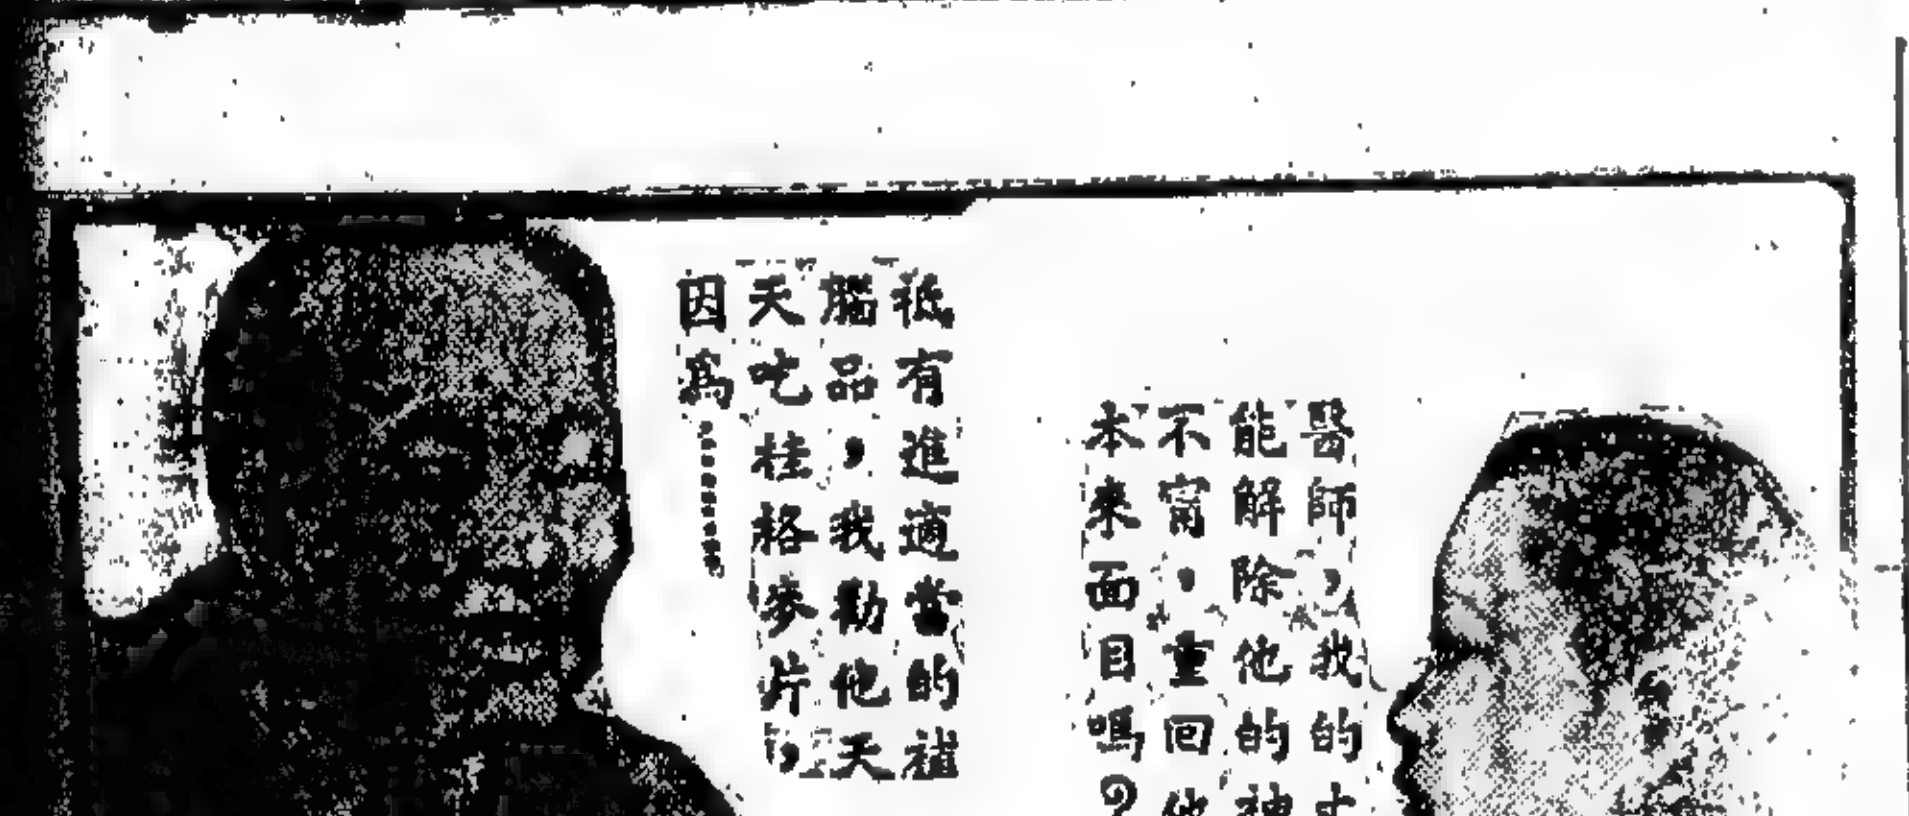 醫師，我的丈
能解除他的神
不甯，重回他
本來面目嗎？
祇有進適當的補
腦品，我勸他天
天吃桂格麥片，
因為………